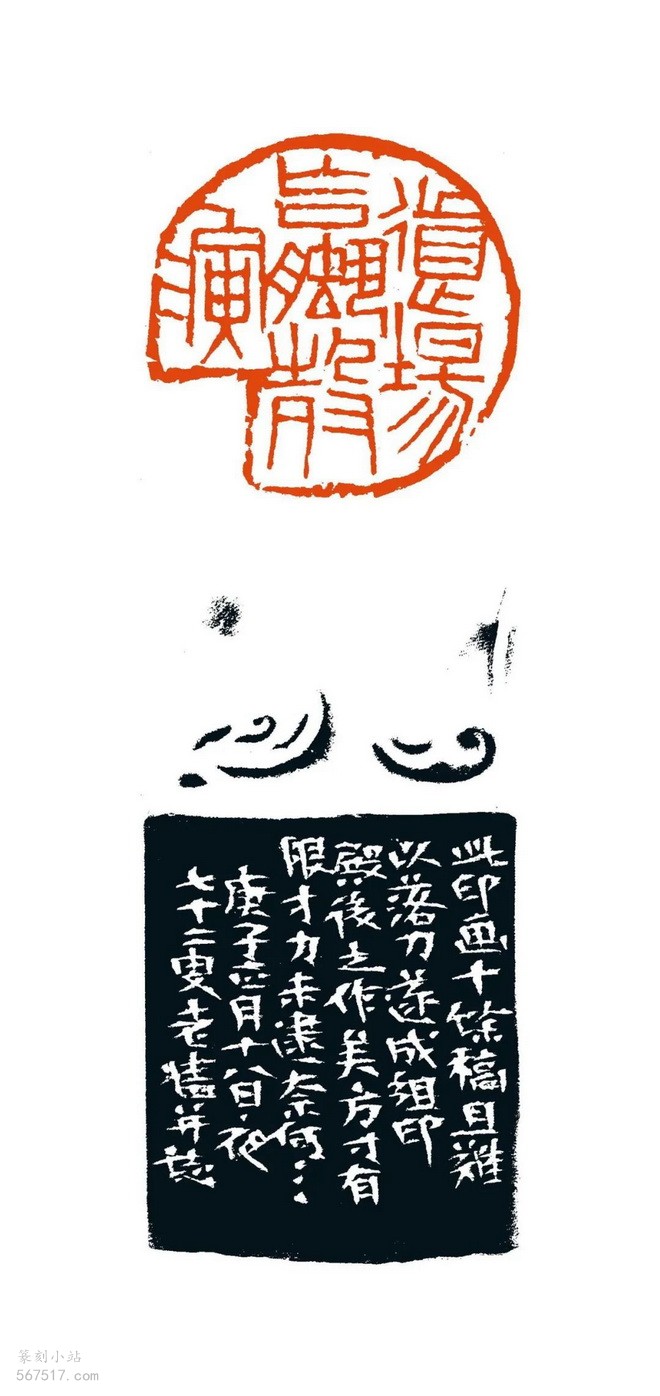 道場
散
演
此印画十餘稿且難
以落刀遂成組印
殿後之作美方寸有
限才力未逮奈何
庚子四月十八日夜
七十二叟老并誌
篆刻小站
567517.com